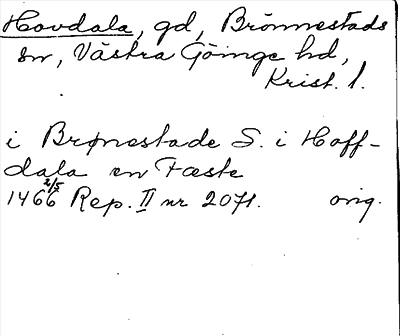 Hovdala, gd, Brönnestads
sn, Västra Göinge hd,
Krist. l.
i Brønestade S. i Hoff-
dala en Fæste
1466 2/5 Rep. II nr 2071. orig.